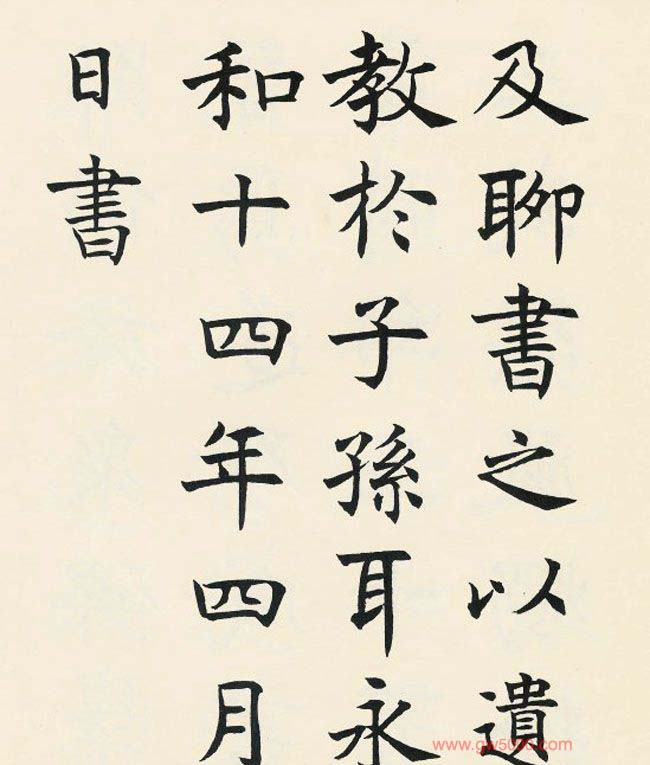 及聊書之以遺
教於子孫耳永
和十四年四月
日書